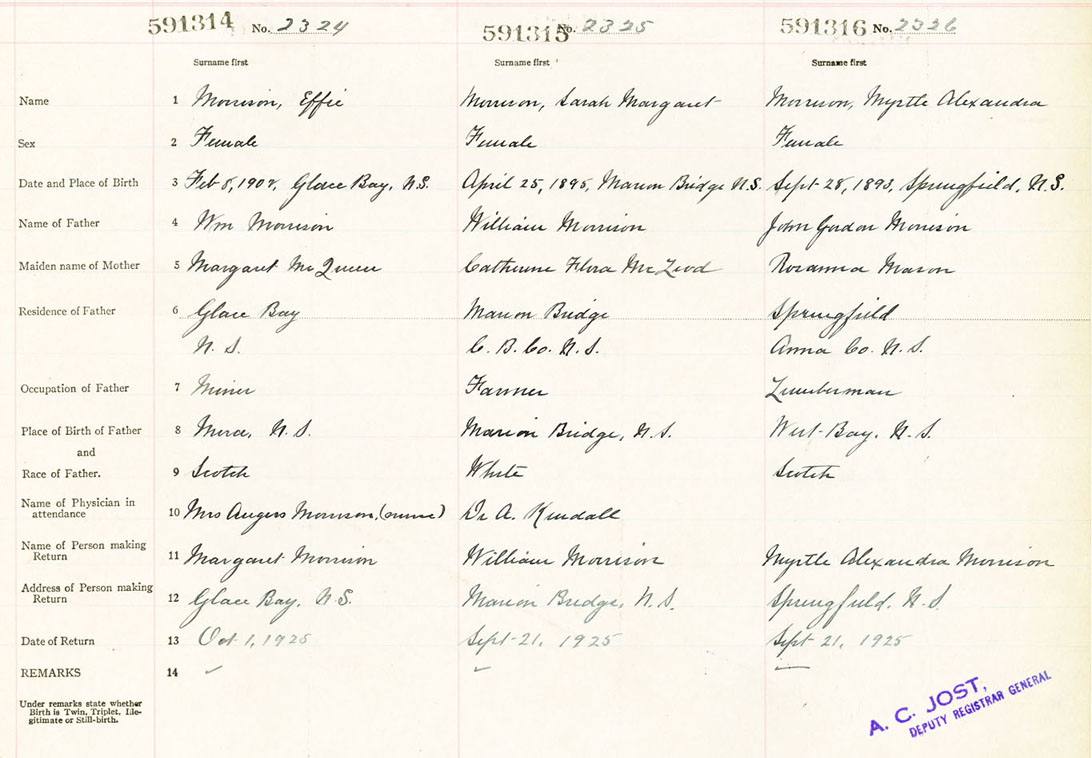 591314 No. 2324 591315 No. 2325 591316 No. 2326
Surname first Surname first Surname first
Name 1 Morrison, Effie Morrison, Sarah Margaret Morrison, Myrtle Alexandra
Sex 2 Female Female Female
Date and Place of Birth 3 Feb 8, Glace Bay, N.S. April 25, 1895, Marion Bridge N.S. Sept 28, 1893, Springfield, N.S.
Name of Father 4 Wm Morrison William Morrison John Gordon Morrison
Maiden name of Mother 5 Margaret McQueen Catherine Flora McLeod Rosanna Mason
Residence of Father 6 Glace Bay Marion Bridge Springfield
N. S. C. B. Co. N. S. Anna Co. N. S.
Occupation of Father 7 Miner Farmer Lumberman
Place of Birth of Father 8 Mira, N. S. Marion Bridge, N. S. West Bay, N. S.
and
Race of Father. 9 Scotch White Scotch
Name of Physician in
attendance 10 Mrs Morrison, (nurse) Dr A. Kendall
Name of Person making
Return 11 Margaret Morrison William Morrison Myrtle Alexandra Morrison
Address of Person making
Return 12 Glace Bay, N.S. Marion Bridge, N. S. Springfield, N. S.
Date of Return 13 Oct 1, 1925 Sept 21, 1925 Sept 21, 1925
REMARKS 14
Under remarks state whether
Birth is Twin, Triplet, Ille-
gitimate or Still-birth.
A. C. JOST,
DEPUTY REGISTRAR GENERAL